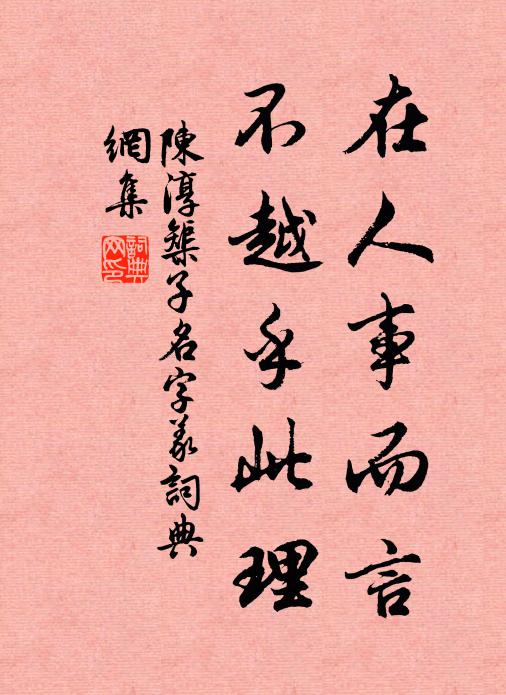 在人事而言
不越乎此理
陳淳榘子名字義詞典
網集
詞典網印